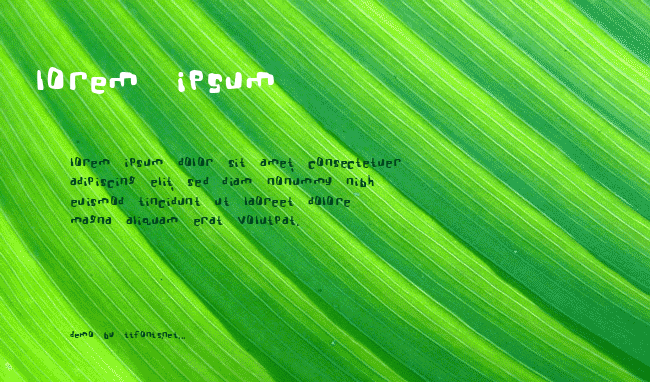 lorem ipsum
lorem ipsum dolor sit amet, consectetuer
adipiscing elit, sed diam nonummy nibh
euismod tincidunt ut laoreet dolore
magna aliquam erat volutpat.
demo by ttfontsnet...